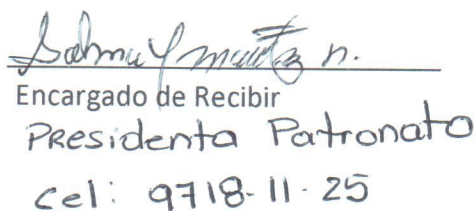 Encargado de Recibir
Presidenta Patronato
cel: 9718-11-25